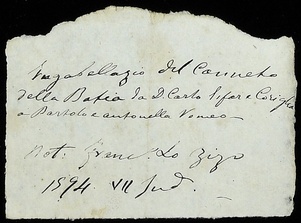 Ingabellazio del Canneto
della Batia da D. Carlo Sifar e Coriglia
a Bartolo e antonella Romeo
Not: Franc. Lo Zizo
1594 VII Ind.